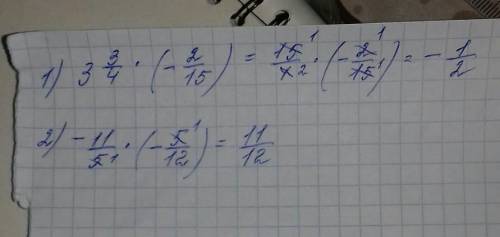 1) 3 3/4 · (- 2/15) = 15¹/4₂ · (- 2¹/15₁) = - 1/2
2) - 11/5₁ · (- 5¹/12) = 11/12